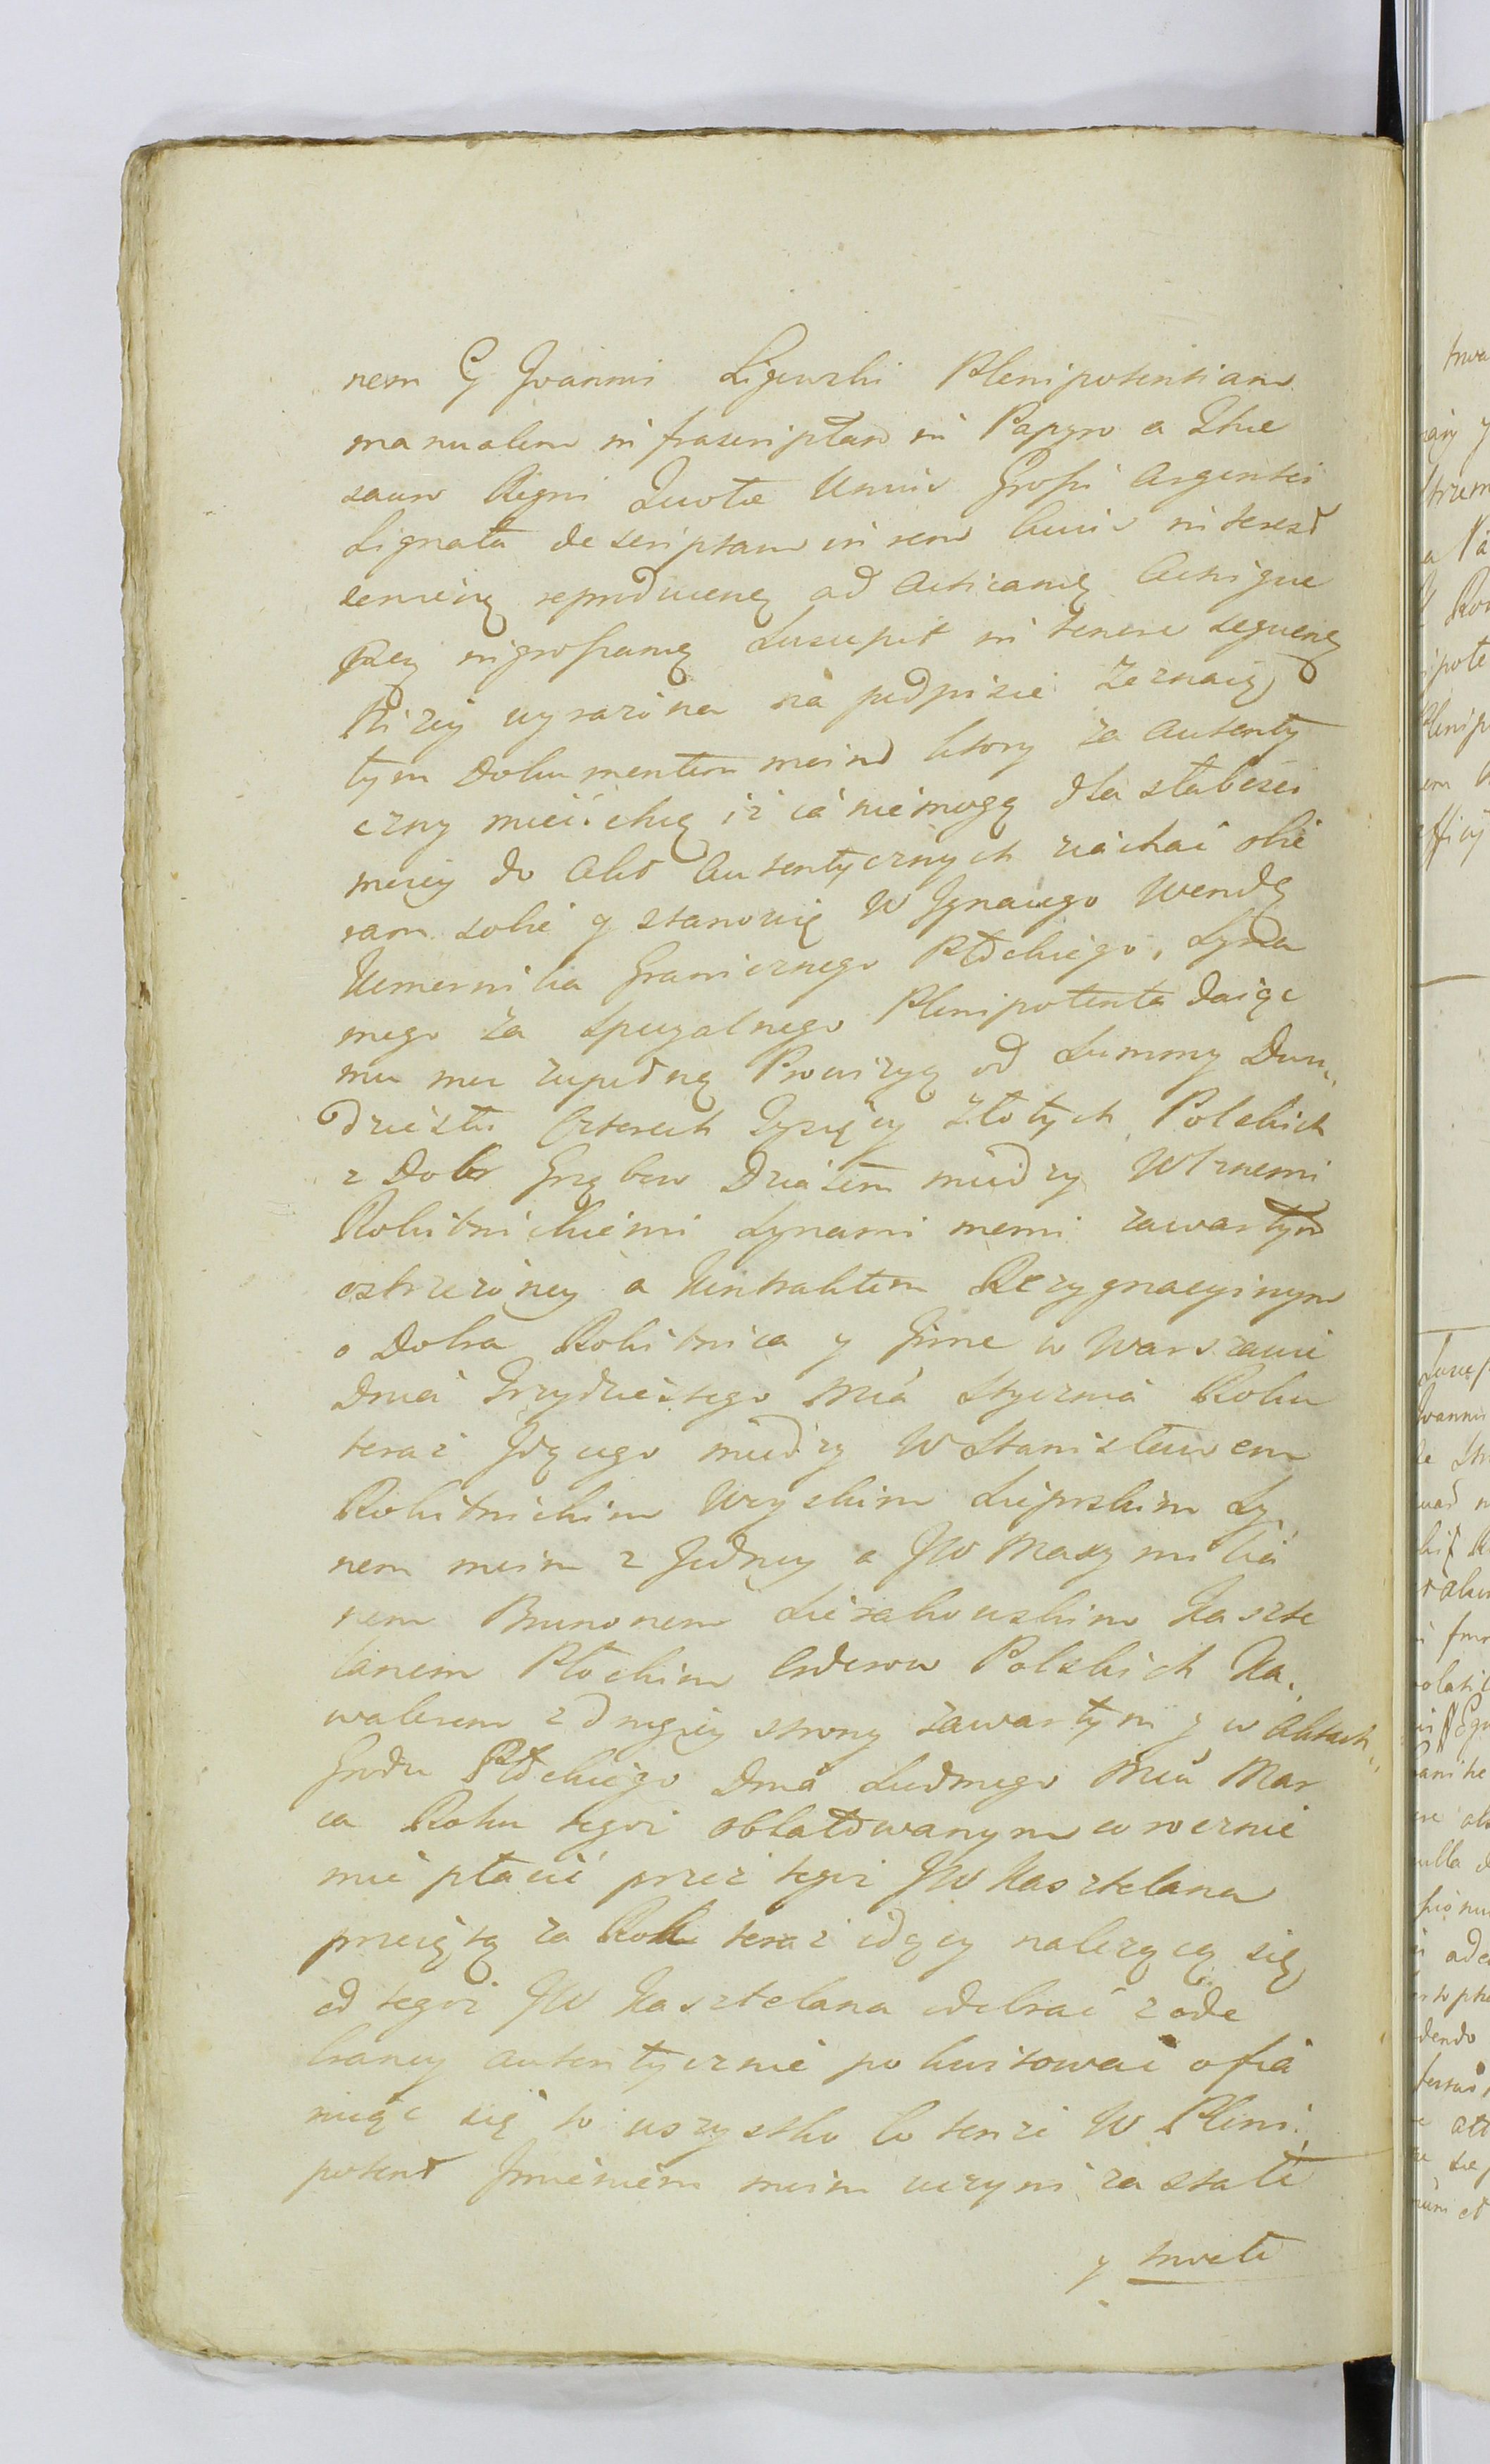 nem G Joannis Lijewski Plenipotentiam
manualem infrascriptam in Papyro a The
sauro Regni Quotæ Unius Grossi Argentei
Signata descriptam in rem huius interest
reproducens ad Acticandū Actisque
Pntibus ingrossandū Suscepit in tenore sequenti
Niżey wyrażona na podpisie zeznaię
tym Dokumentem moim ktory za autenty
czny mieć chcę iż ia niemogę dla słabości
moiey do Akt Autentycznych ziachać obie
ram sobie y stanowię W Jgnacego Wendę
Komornika Granicznego Płockiego, Syna
mego za Specyalnego Plenipotenta daiąc
mu moc zupełną Prowizyą od Summy Dwu„
dziestu Czterech Tysięcy Złotych Polskich
z Dobr Grąbew Działem między Wżnemi
Rokitnickiemi Synami memi zawartym
ostrzeżoney a Kontraktem Rezygnacyinym
o Dobra Rokitnica y Jnne w Warszawie
Dnia Trzydziestego Mca Stycznia Roku
teraz Jdącego między W Stanisławem
Rokitnickim Wzyskim Sierpskim Sy„
nem moim z Jedney a JW Maxymilia
nem Brunonem Sierakowskim Kaszte
lanem Płockim Orderow Polskich Ka„
walerem z drugiey strony zawartym y w Aktach„
Grodu Płockiego Dnia Siodmego Mca Mar
ca Roku tegoż oblatowanym corocznie
mie płacić przez tegoż JW Kasztelana
przeiętą za Rok teraz idący należącą się
od tegoż JW Kasztelana odebrać z ode
braney autentycznie pokwitować ofia
ruiąc się to wszystko co tenże W Pleni„
potent Jmieniem moim uczyni za stałe
y trwałe